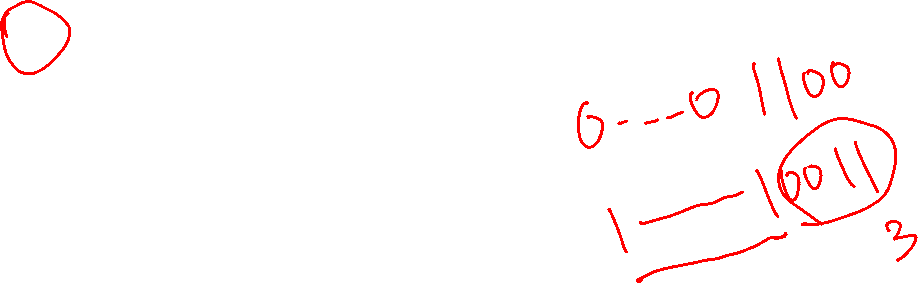 0---0 1100
1——10011
3